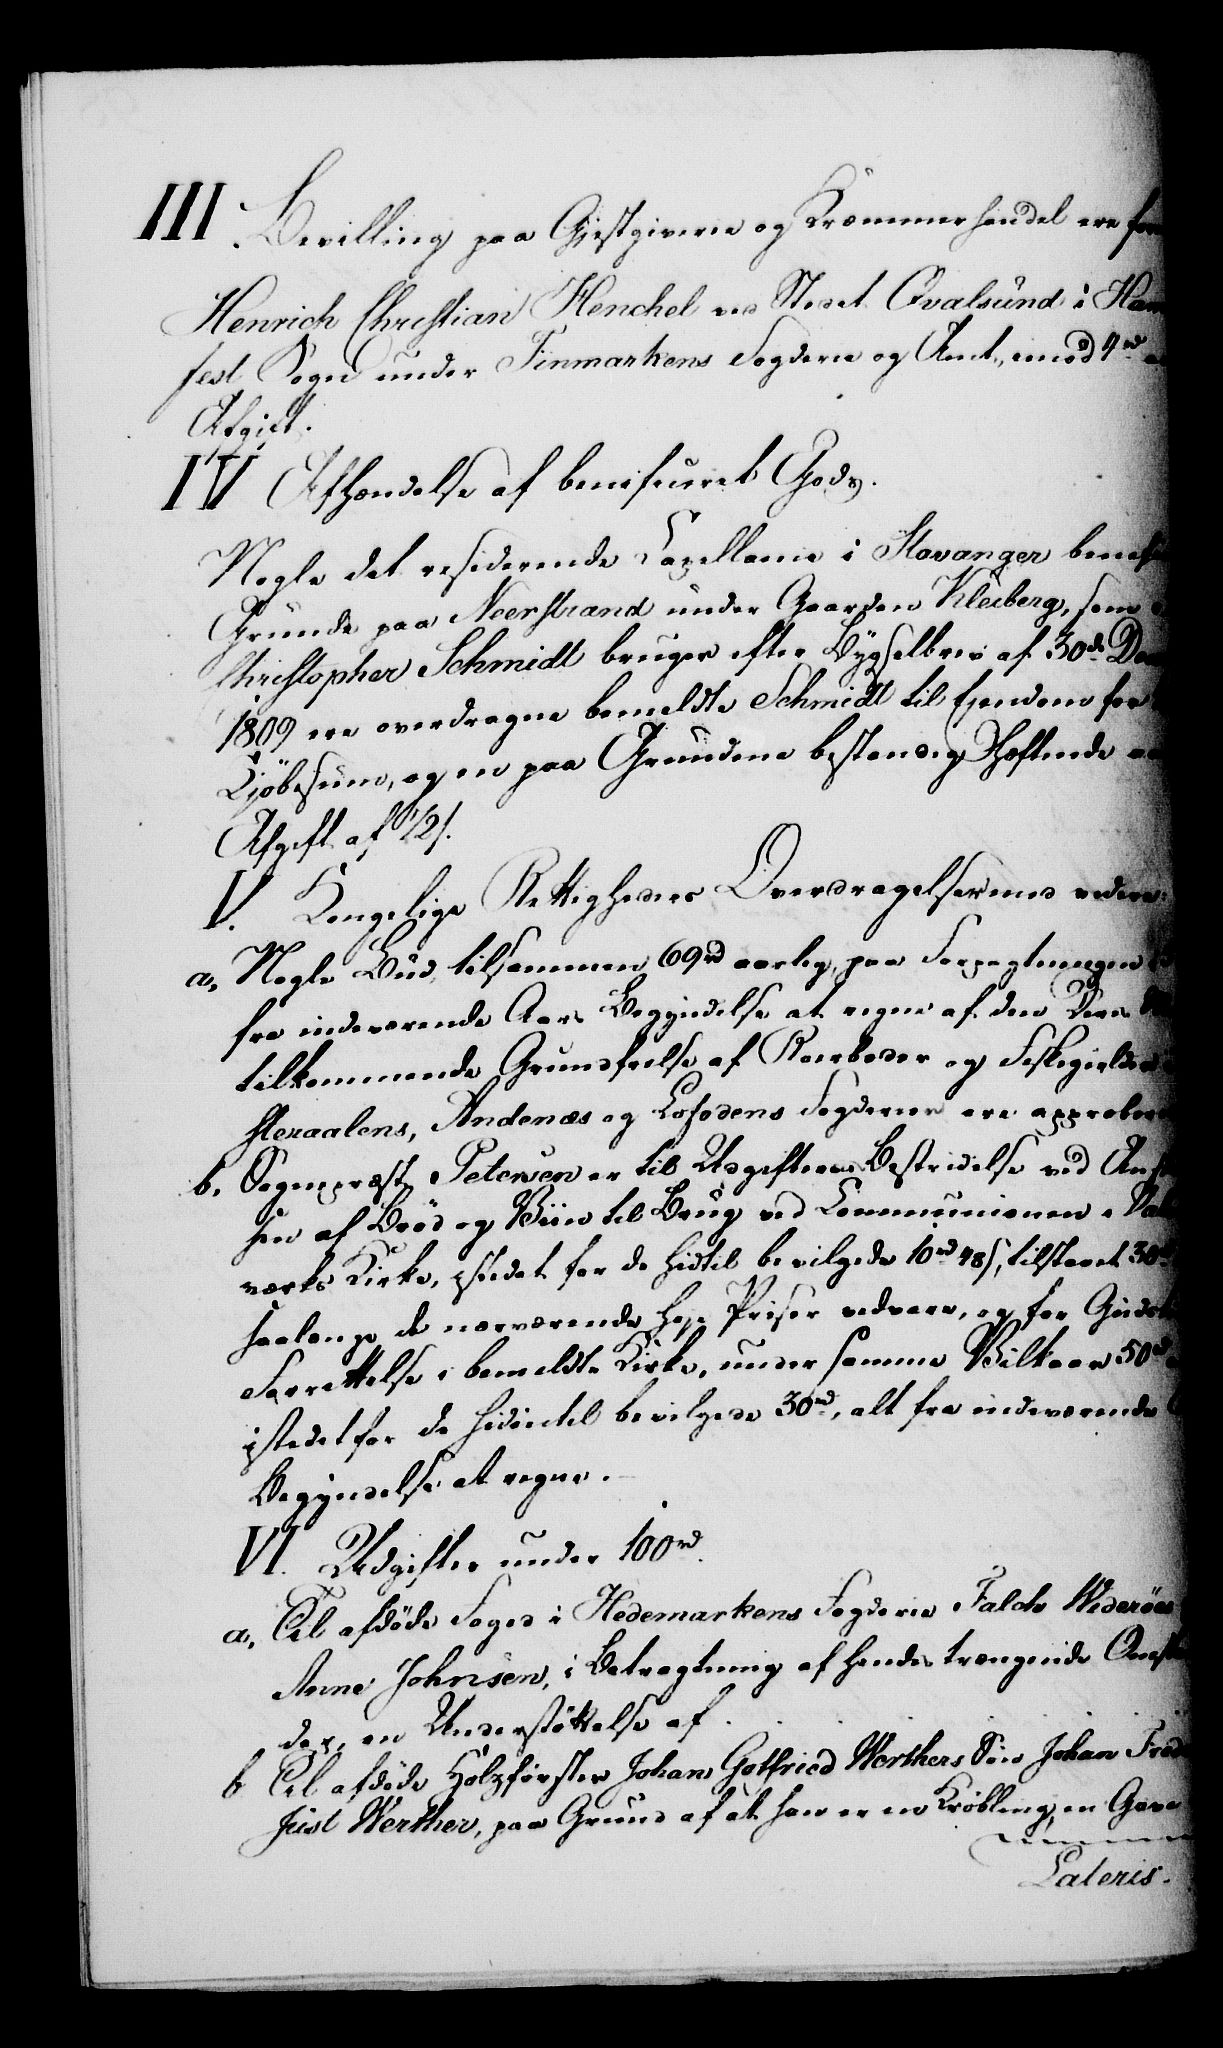 III. Bevilling paa Gjestgiverie og Kræmmerhandel ere for
Henrich Christian Henchel ved Stedet Qvalsund i Ham
fest Sogn under Finmarkens Fogderie og Amt, imod 4rd
Afgift.
IV Afhændelse af beneficeret Gods.
Nogle det residerende Capellanie i Stavanger benefi
Grunde paa Neerstrand under Gaarden Kleiberg, som
Christopher Schmidt bruger efter Bygselbrev af 30de De
1809 ere overdragne bemeldte Schmidt til Ejendom for
Kjöbesum, og en paa Grundene bestandig heftende aa
Afgift af 12/.
V. Kongelige Rettigheders Overdragelse med videre:
a, Nogle Bud, tilsammen 69rd aarlig, paa Forpagtningen
fra indeværende Aars Begyndelse at regne af den Deres
tilkommende Grundfrelse af Roerboder og Fiskegielder
steraalens, Andenæs og Lofodens Fogderier ere approbere
b. Sognepræst Petersen er til Udgifternes Bestridelse ved An
sen af Bröd og Viin til Brug ved Communionen i
værks Kirke, istedet for de hidtil bevilgede 10rd 48/, tilstaaet 30rd
saalænge de nærværende høje Priser vedvare, og for Guds
Forrettelse i bemeldte Kirke, under samme Vilkaar 50rd
istedet for de hidindtil bevilgede 30rd, alt fra indeværende
Begyndelse at regne.
VI. Udgifter under 100rd.
a, Til afdöde Foged i Hedemarkens Fogderie Falch Wideröes
Anne Johnsen, i Betragtning af hendes trængende Omstæ
der, en Understöttelse af . . . . .
b Til afdöde Holzförster Johan Gotfried Werthers Sön Johan Fred
Just Werther, paa Grund af at han er en Kröbling, en Gave
Lateris.